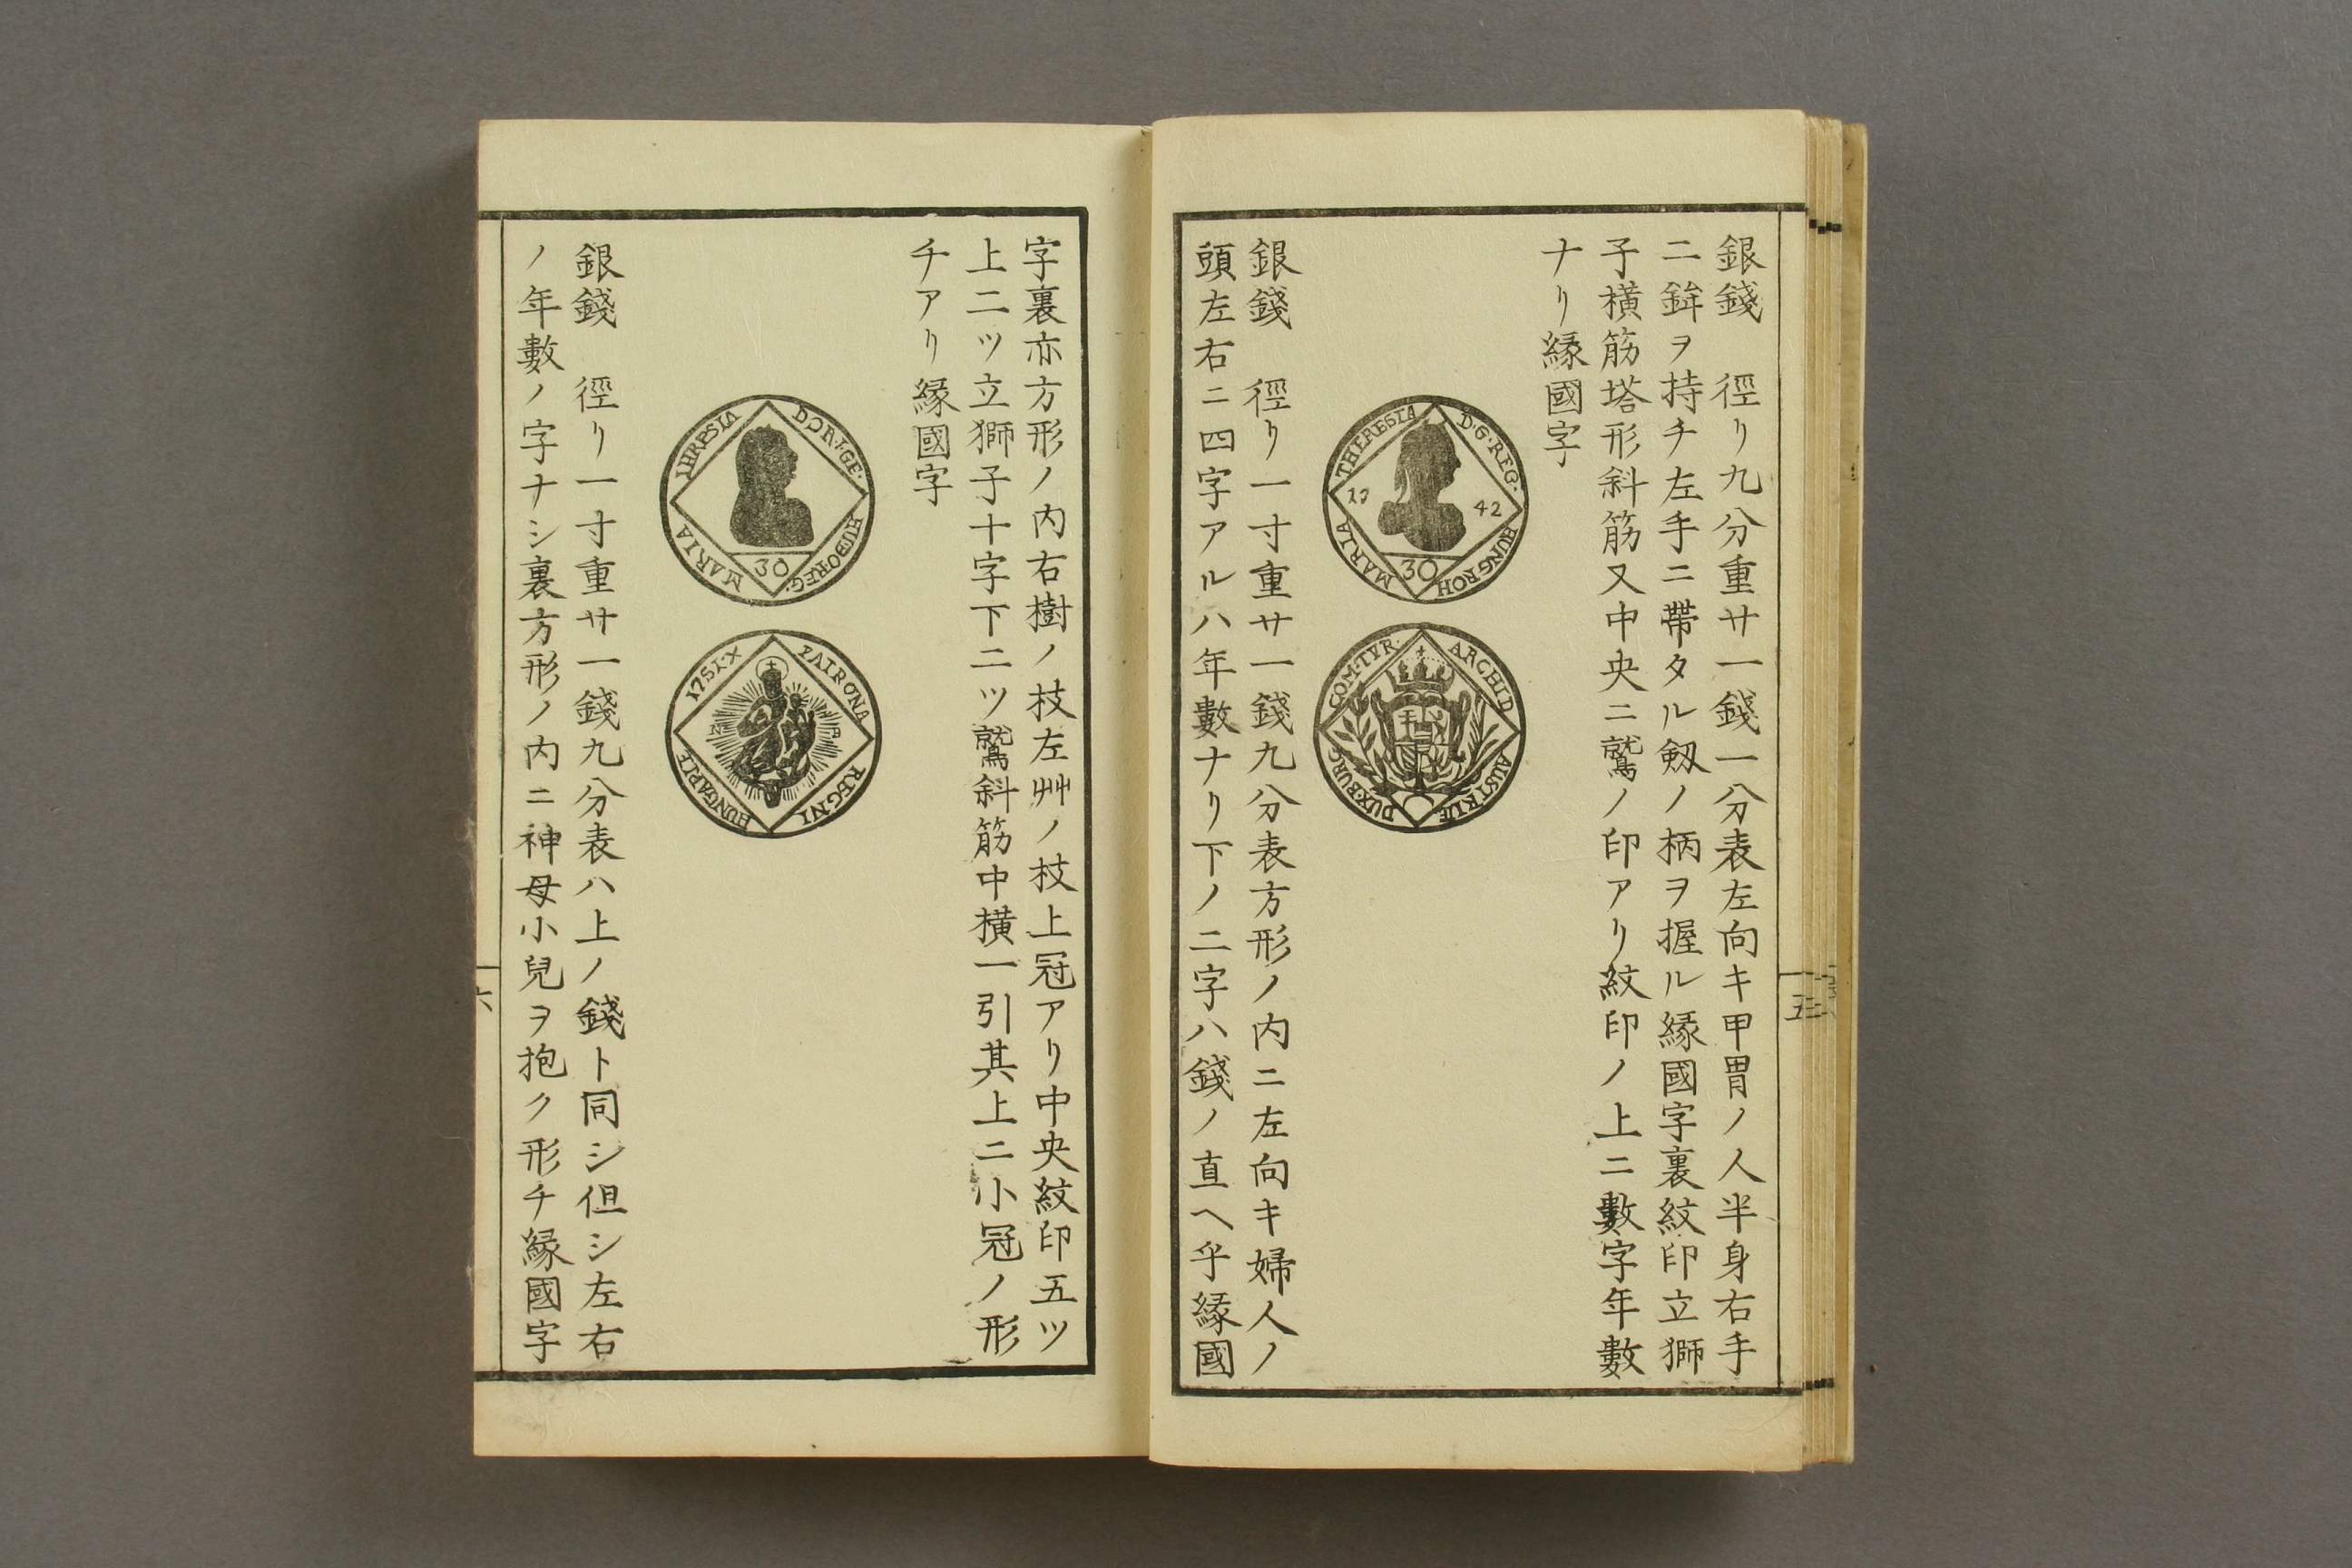 銀錢　徑リ九分重サ一錢一分表左向キ甲冑ノ人半身右手
ニ鉾ヲ持チ左手ニ帶タル劔ノ柄ヲ握ル縁國字裏紋印立獅
子横筋塔形斜筋又中央ニ鷲ノ印アリ紋印ノ上ニ數字年數
ナリ縁國字
THERESIA
D·G·REG·
17
42
MARIA
30
HUNGBOH
COM·TYR·
ARCHID
DUX·BURG
AUSTRIÆ
銀錢　徑リ一寸重サ一錢九分表方形ノ内ニ左向キ婦人ノ
頭左右ニ四字アルハ年數ナリ下ノ二字ハ錢ノ直ヘ乎縁國
五
字裏亦方形ノ内右樹ノ枝左艸ノ枝上冠アリ中央紋印五ツ
上二ツ立獅子十字下二ツ鷲斜筋中横一引其上ニ小冠ノ形
チアリ縁國字
MARIA
30
1751·X
PAIRONA
REGNI
銀錢　徑リ一寸重サ一錢九分表ハ上ノ錢ト同シ但シ左右
ノ年數ノ字ナシ裏方形ノ内ニ神母小兒ヲ抱ク形チ縁國字
六